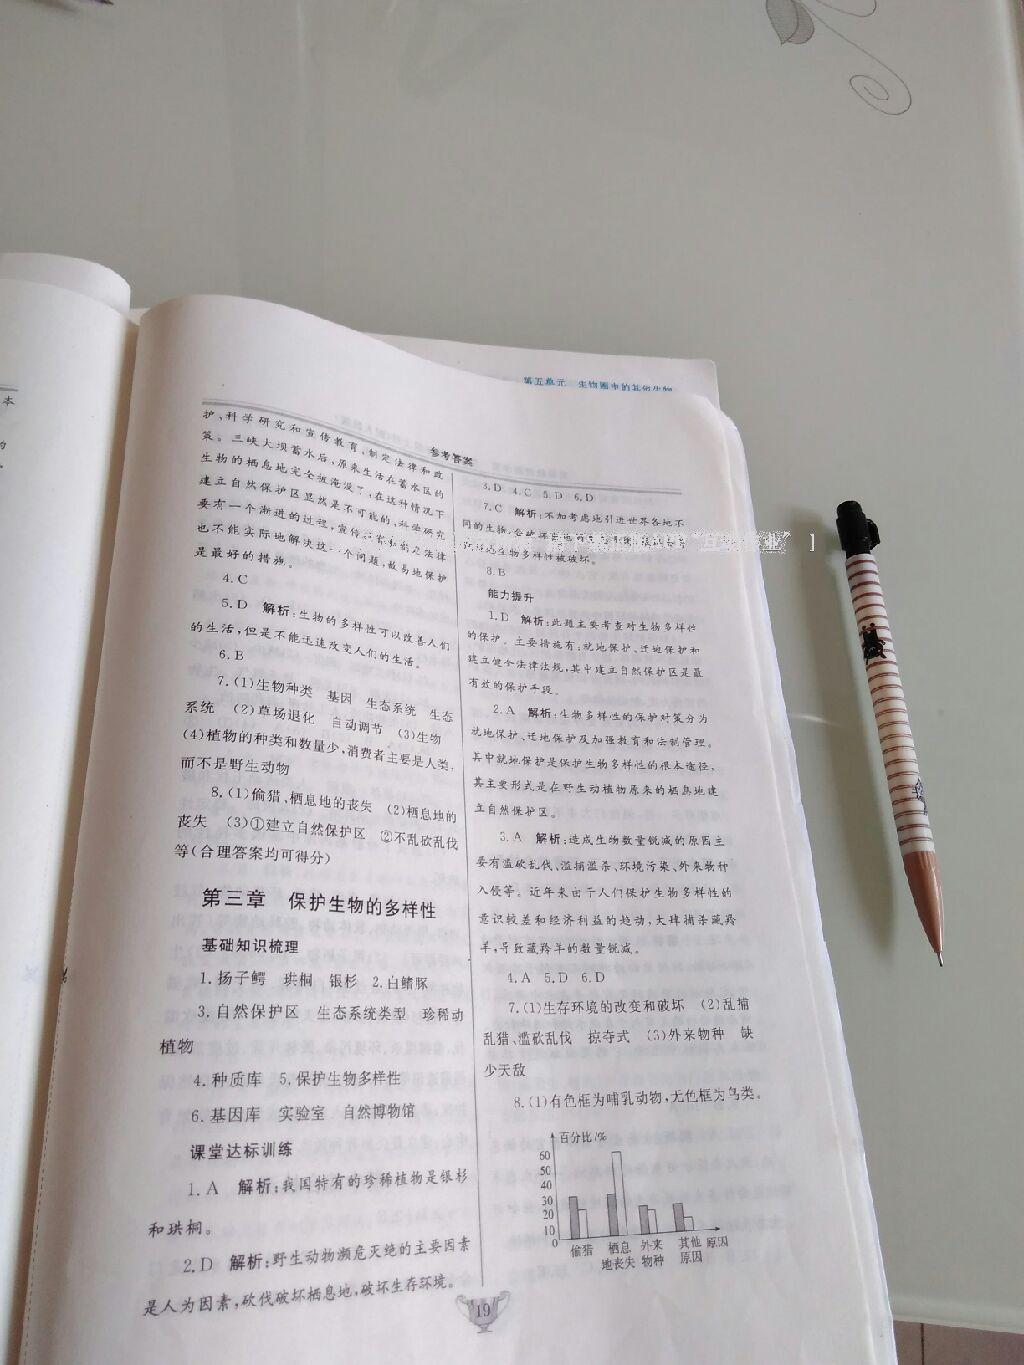 第五单元 生物圈中的其他生物
参考答案
护、科学研究和宣传教育、制定法律和政
策。三峡大坝蓄水后,原来生活在蓄水区的
生物的栖息地完全被淹没了,在这种情况下
建立自然保护区显然是不可能的,科学研究
要有一个渐进的过程,宣传教育和制定法律
也不能实际地解决这一个问题,故易地保护
是最好的措施。
4.C
5.D 解析:生物的多样性可以改善人们
的生活,但是不能迅速改变人们的生活。
6.B
7.(1)生物种类 基因 生态系统 生态
系统 (2)草场退化 自动调节 (3)生物
(4)植物的种类和数量少,消费者主要是人类,
而不是野生动物
8.(1)偷猎、栖息地的丧失 (2)栖息地的
丧失 (3)①建立自然保护区 ②不乱砍乱伐
等(合理答案均可得分)
第三章 保护生物的多样性
基础知识梳理
1.扬子鳄 珙桐 银杉 2.白鳍豚
3.自然保护区 生态系统类型 珍稀动
植物
4.种质库 5.保护生物多样性
6.基因库 实验室 自然博物馆
课堂达标训练
1.A 解析:我国特有的珍稀植物是银杉
和珙桐。
2.D 解析:野生动物濒危灭绝的主要因素
是人为因素,砍伐破坏栖息地,破坏生存环境。
3.D 4.C 5.D 6.D
7.C 解析:不加考虑地引进世界各地不
同的生物,会破坏当地的
生物多样性被破坏。
8.B
能力提升
1.D 解析:此题主要考查对生物多样性
的保护。主要措施有:就地保护、迁地保护和
建立健全法律法规,其中建立自然保护区是最
有效的保护手段。
2.A 解析:生物多样性的保护对策分为
就地保护、迁地保护及加强教育和法制管理。
其中就地保护是保护生物多样性的根本途径,
其主要形式是在野生动植物原来的栖息地建
立自然保护区。
3.A 解析:造成生物数量锐减的原因主
要有滥砍乱伐、滥捕滥杀、环境污染、外来物种
入侵等。近年来由于人们保护生物多样性的
意识较差和经济利益的趋动,大肆捕杀藏羚
羊,导致藏羚羊的数量锐减。
4.A 5.D 6.D
7.(1)生存环境的改变和破坏 (2)乱捕
乱猎、滥砍乱伐 掠夺式 (3)外来物种 缺
少天敌
8.(1)有色框为哺乳动物,无色框为鸟类。
百分比/%
60
50
40
30
20
10
0
偷猎 栖息地丧失 外来物种 其他原因 原因
19